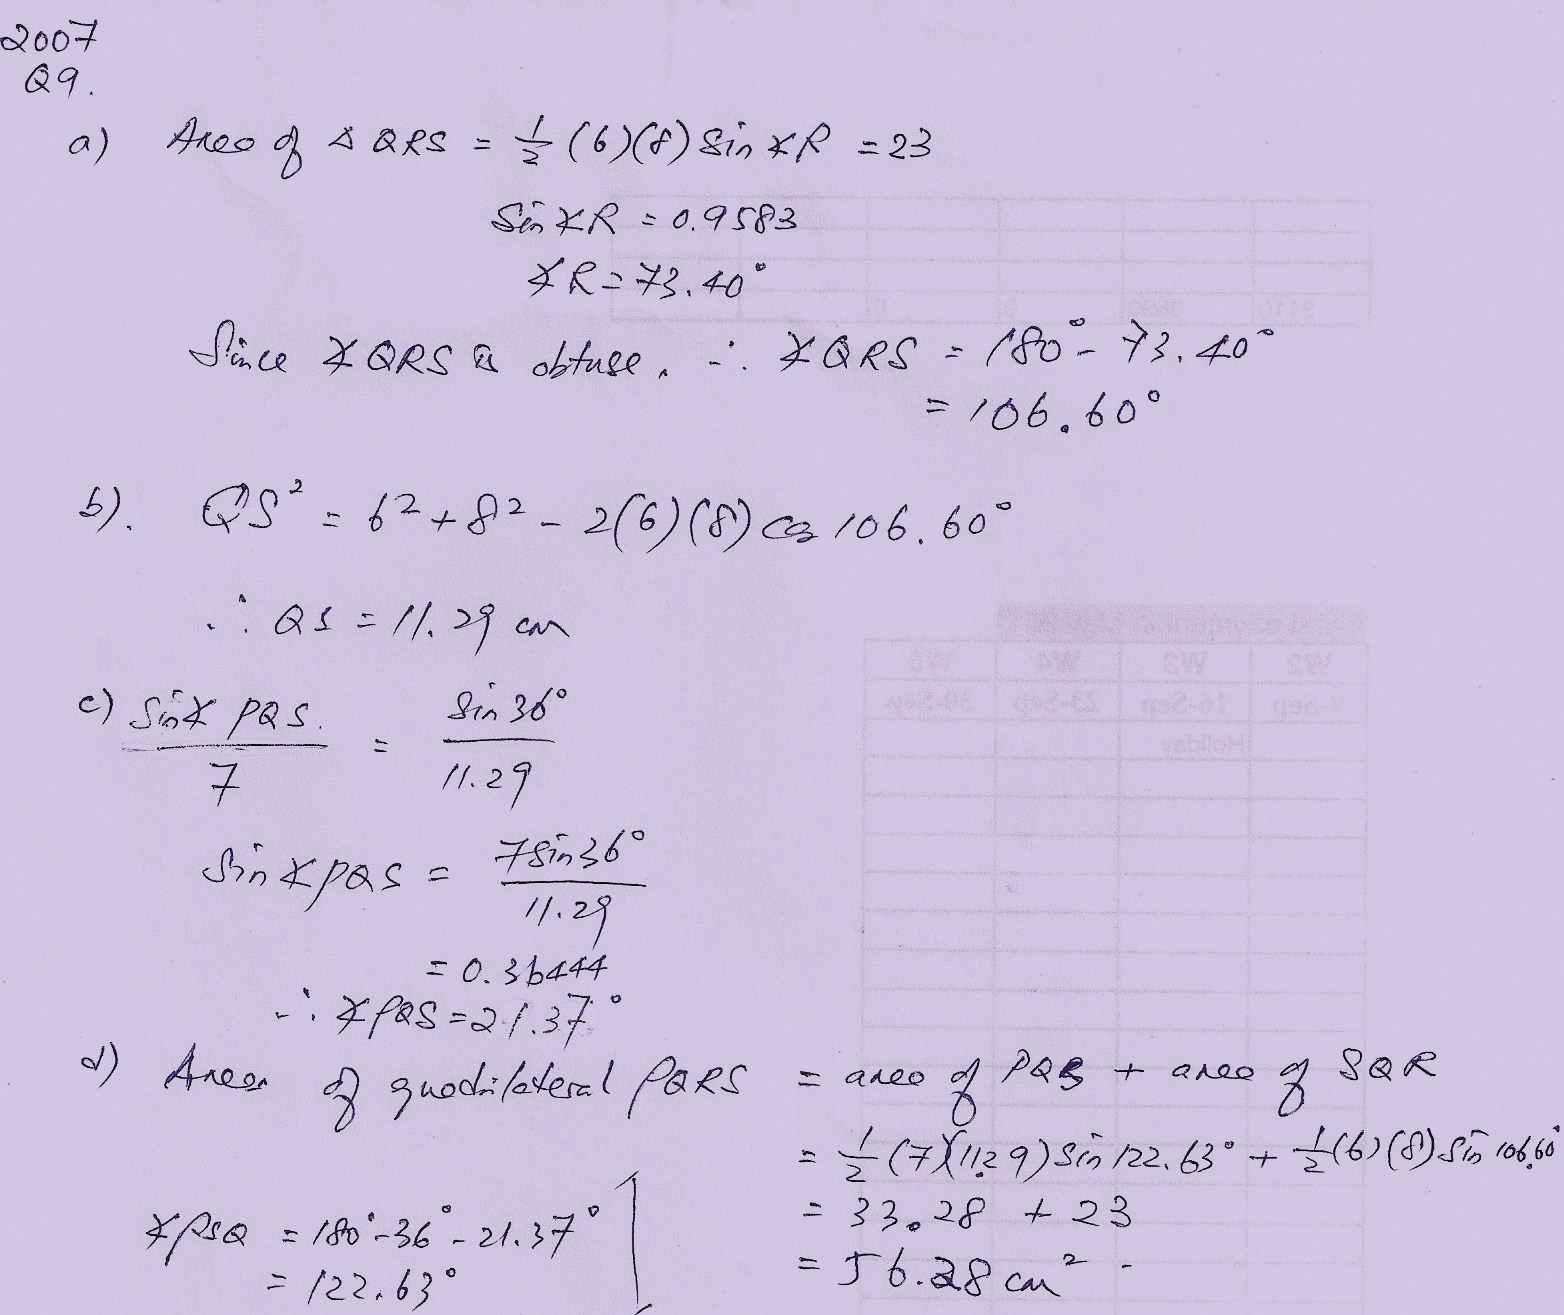 2007
Q9.
a) Area of Δ QRS = 1/2 (6)(8) sin ∡R = 23
Sin ∡R = 0.9583
∡R = 73.40°
Since ∡QRS is obtuse, ∴ ∡QRS = 180° - 73.40°
= 106.60°
b). QS² = 6² + 8² - 2(6)(8) cos 106.60°
∴ QS = 11.29 cm
c) Sin∡ PQS. / 7 = Sin 36° / 11.29
Sin ∡PQS = 7Sin36° / 11.29
= 0.36444
∴ ∡PQS = 21.37°
d) Area of quadrilateral PQRS = area of PQS + area of SQR
= 1/2 (7)(11.29) Sin 122.63° + 1/2 (6)(8) Sin 106.60°
= 33.28 + 23
= 56.28 cm²
∡PSQ = 180° - 36° - 21.37°
= 122.63°
W5 W4 W3 W2
30-Sep 23-Sep 16-Sep
Holiday